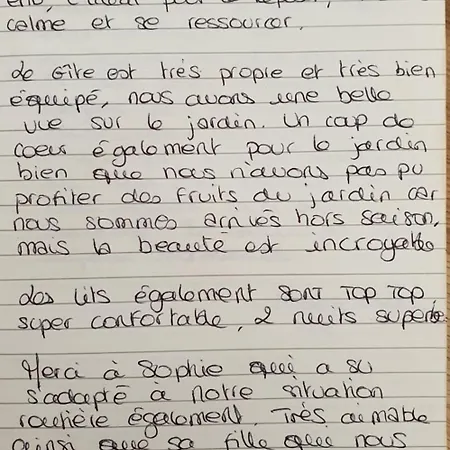 calme et se ressourcer,
de Gîte est très propre et très bien
équipé, nous avons une belle
vue sur le jardin. Un coup de
coeur également pour le jardin
bien que nous n'avons pas pu
profiter des fruits du jardin car
nous sommes arrivés hors saison,
mais la beauté est incroyable
des lits également SONT TOP TOP,
super confortable, 2 nuits superbe
Merci à Sophie qui a su
s'adapté à notre situation
également. Très aimable
ainsi que sa fille que nous